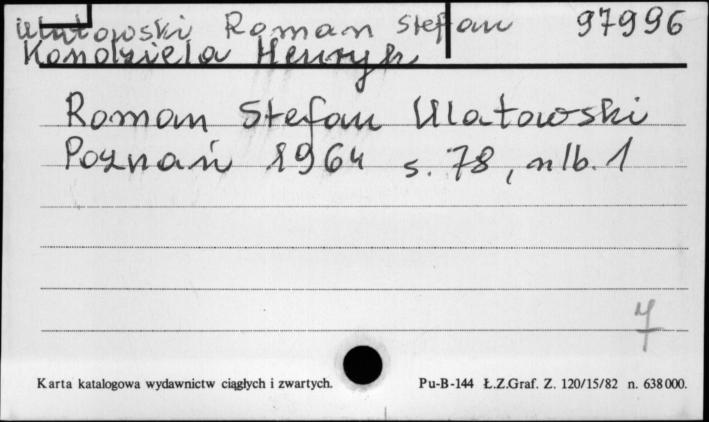 Ulatowski Roman Stefan 97996
Kondziela Henryk
Roman Stefan Ulatowski
Poznań 1964 s. 78, nlb. 1
4
Karta katalogowa wydawnictw ciągłych i zwartych.
Pu-B-144 Ł.Z.Graf. Z. 120/15/82 n. 638000.